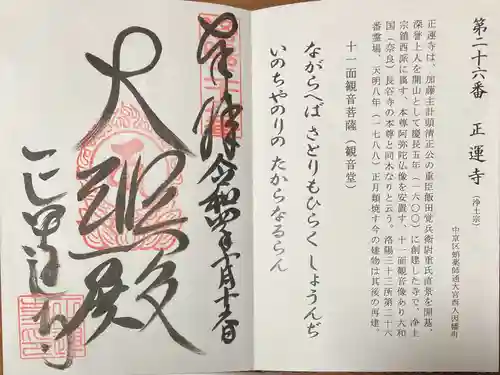 第二十六番　正運寺（浄土宗）
中京区蛸薬師通大宮西入因幡町
正運寺は、加藤主計頭清正公の重臣飯田覚兵衛尉重氏直景を開基、
深誉上人を開山として慶長五年（一六〇〇）に創建した寺で、浄土
宗鎮西派に属す、本尊阿弥陀仏像を安置す、十一面観音像あり大和
国（奈良）長谷寺の本尊と同木なりと云う。洛陽三十三所第二十六
番霊場、天明八年（一七八八）正月類焼す今の建物は其後の再建。
十一面観音菩薩（観音堂）
ながらへば さとりもひらく しょうんぢ
いのちやのりの たからなるらん
奉拝
大悲殿
正運寺